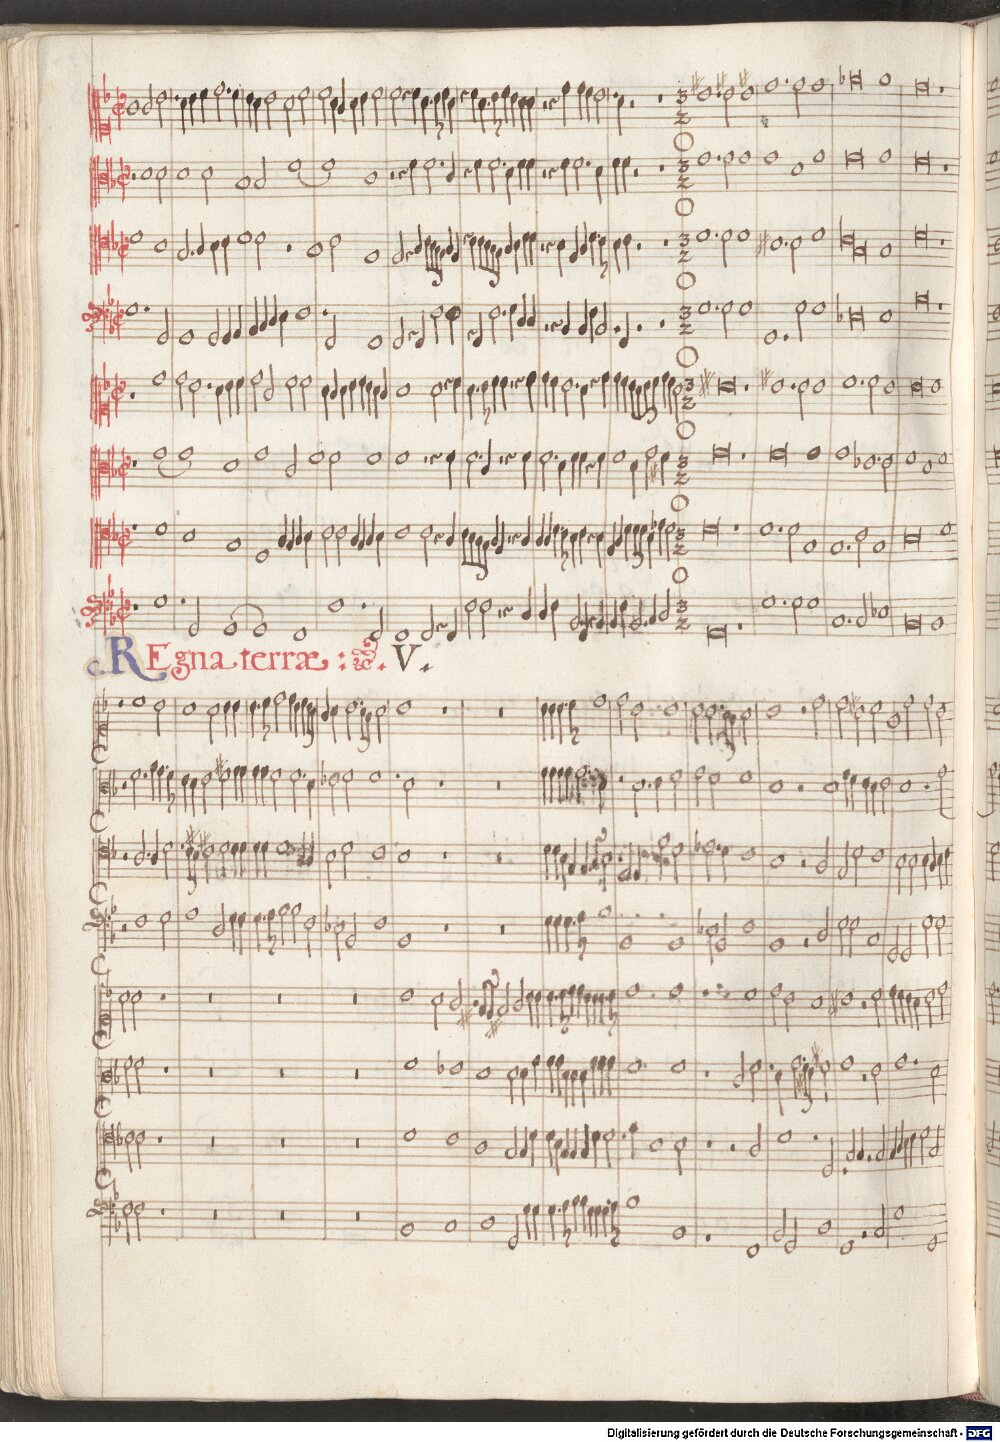 REgna terræ : V.
Digitalisierung gefördert durch die Deutsche Forschungsgemeinschaft - DFG